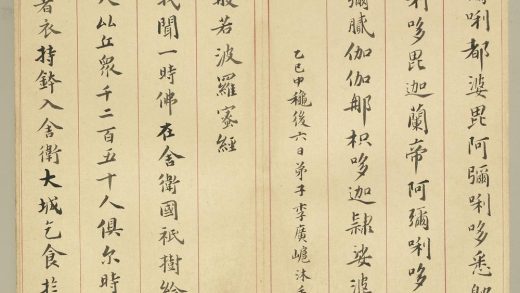 彌唎都婆毘阿彌唎哆悉
唎哆毘迦蘭帝阿彌唎哆
彌膩伽伽那枳哆迦隸娑婆
乙巳中穐後六日弟子李廣沐
般若波羅蜜經
我聞一時佛在舍衛國祇樹給
比丘眾千二百五十人俱尔時
著衣持鉢入舍衛大城乞食於